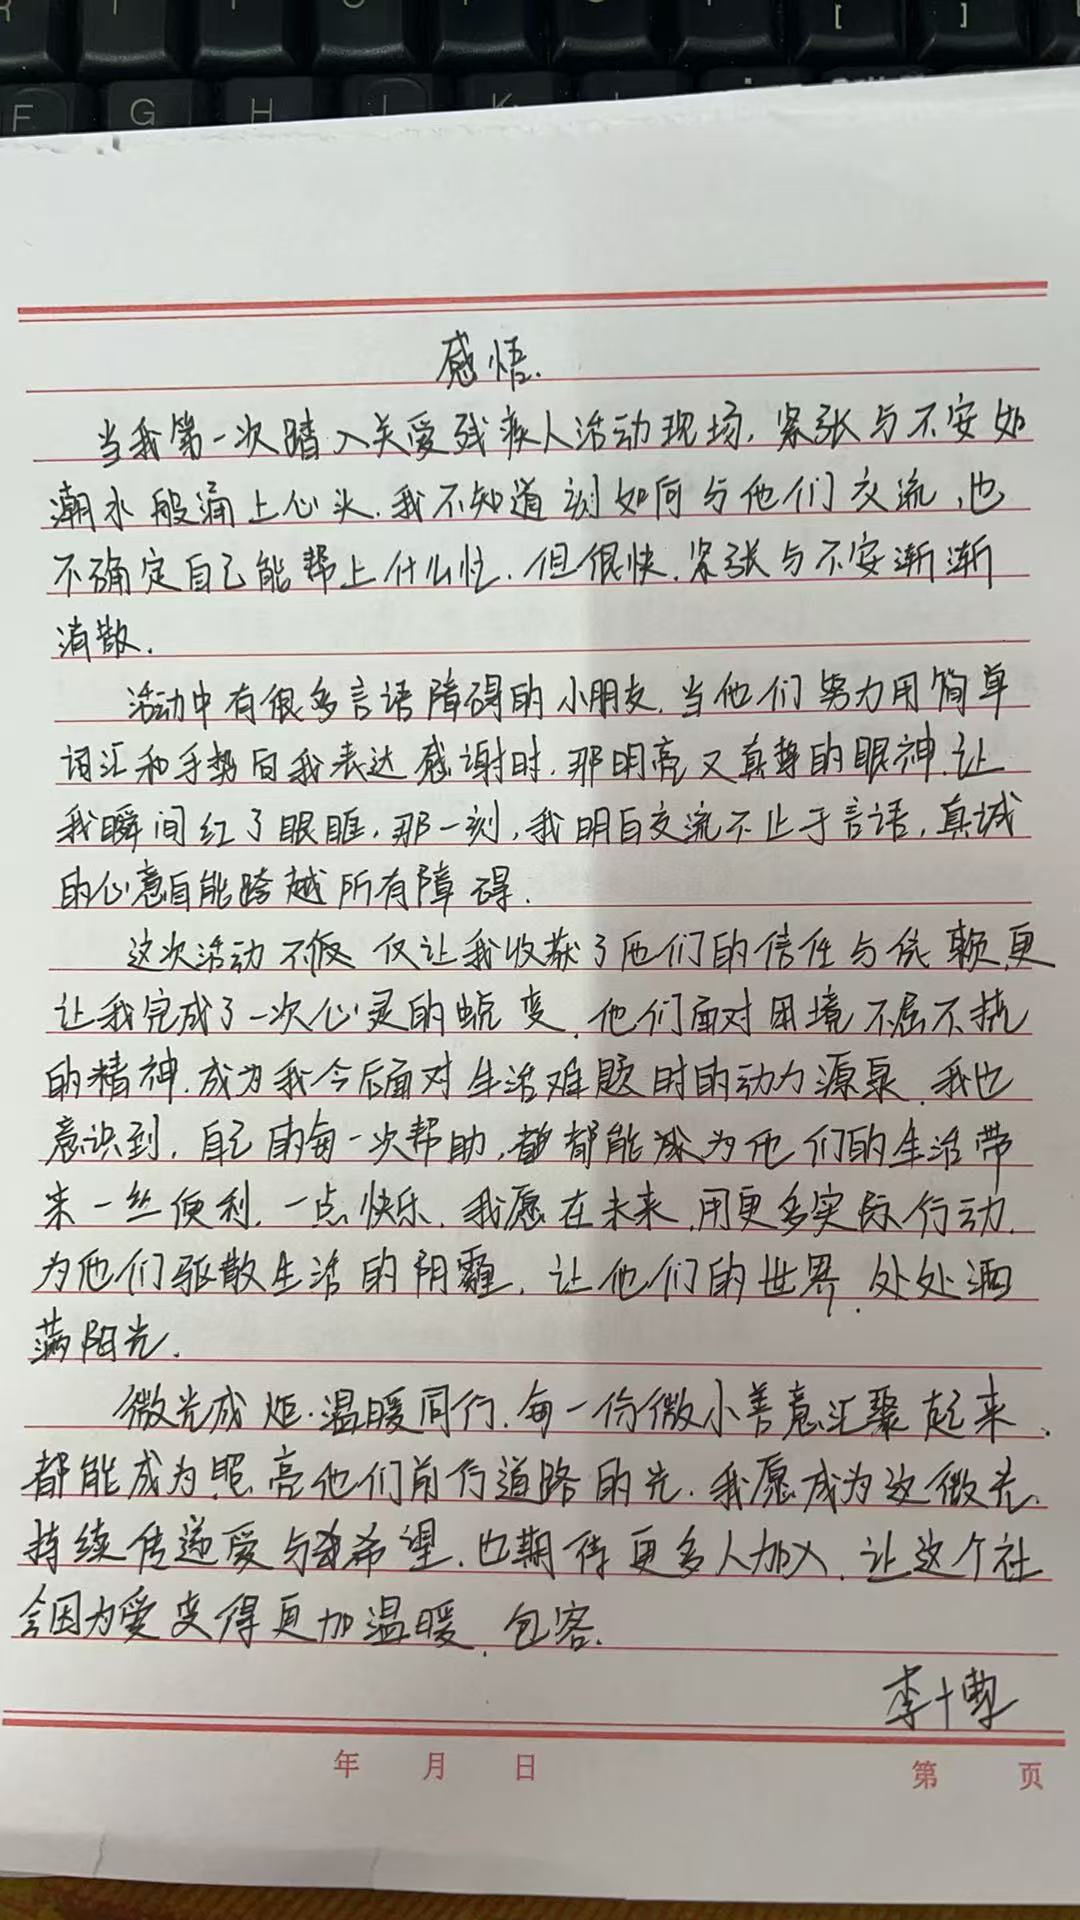 F G H J K L
感悟.
当我第一次踏入关爱残疾人活动现场,紧张与不安如
潮水般涌上心头.我不知道该如何与他们交流,也
不确定自己能帮上什么忙.但很快,紧张与不安渐渐
消散.
活动中有很多言语障碍的小朋友.当他们努力用简单
词汇和手势向我表达感谢时,那明亮又真挚的眼神,让
我瞬间红了眼眶,那一刻,我明白交流不止于言语,真诚
的心意自能跨越所有障碍.
这次活动不仅让我收获了他们的信任与依赖,更
让我完成了一次心灵的蜕变.他们面对困境不屈不挠
的精神,成为我今后面对生活难题时的动力源泉.我也
意识到,自己的每一次帮助,都能成为他们的生活带
来一丝便利,一点快乐.我愿在未来,用更多实际行动,
为他们驱散生活的阴霾,让他们的世界,处处洒
满阳光.
微光成炬.温暖同行.每一份微小善意汇聚起来,
都能成为照亮他们前行道路的光.我愿成为这微光,
持续传递爱与希望,也期待更多人加入,让这个社
会因为爱变得更加温暖,包容.
李博
年 月 日 第 页